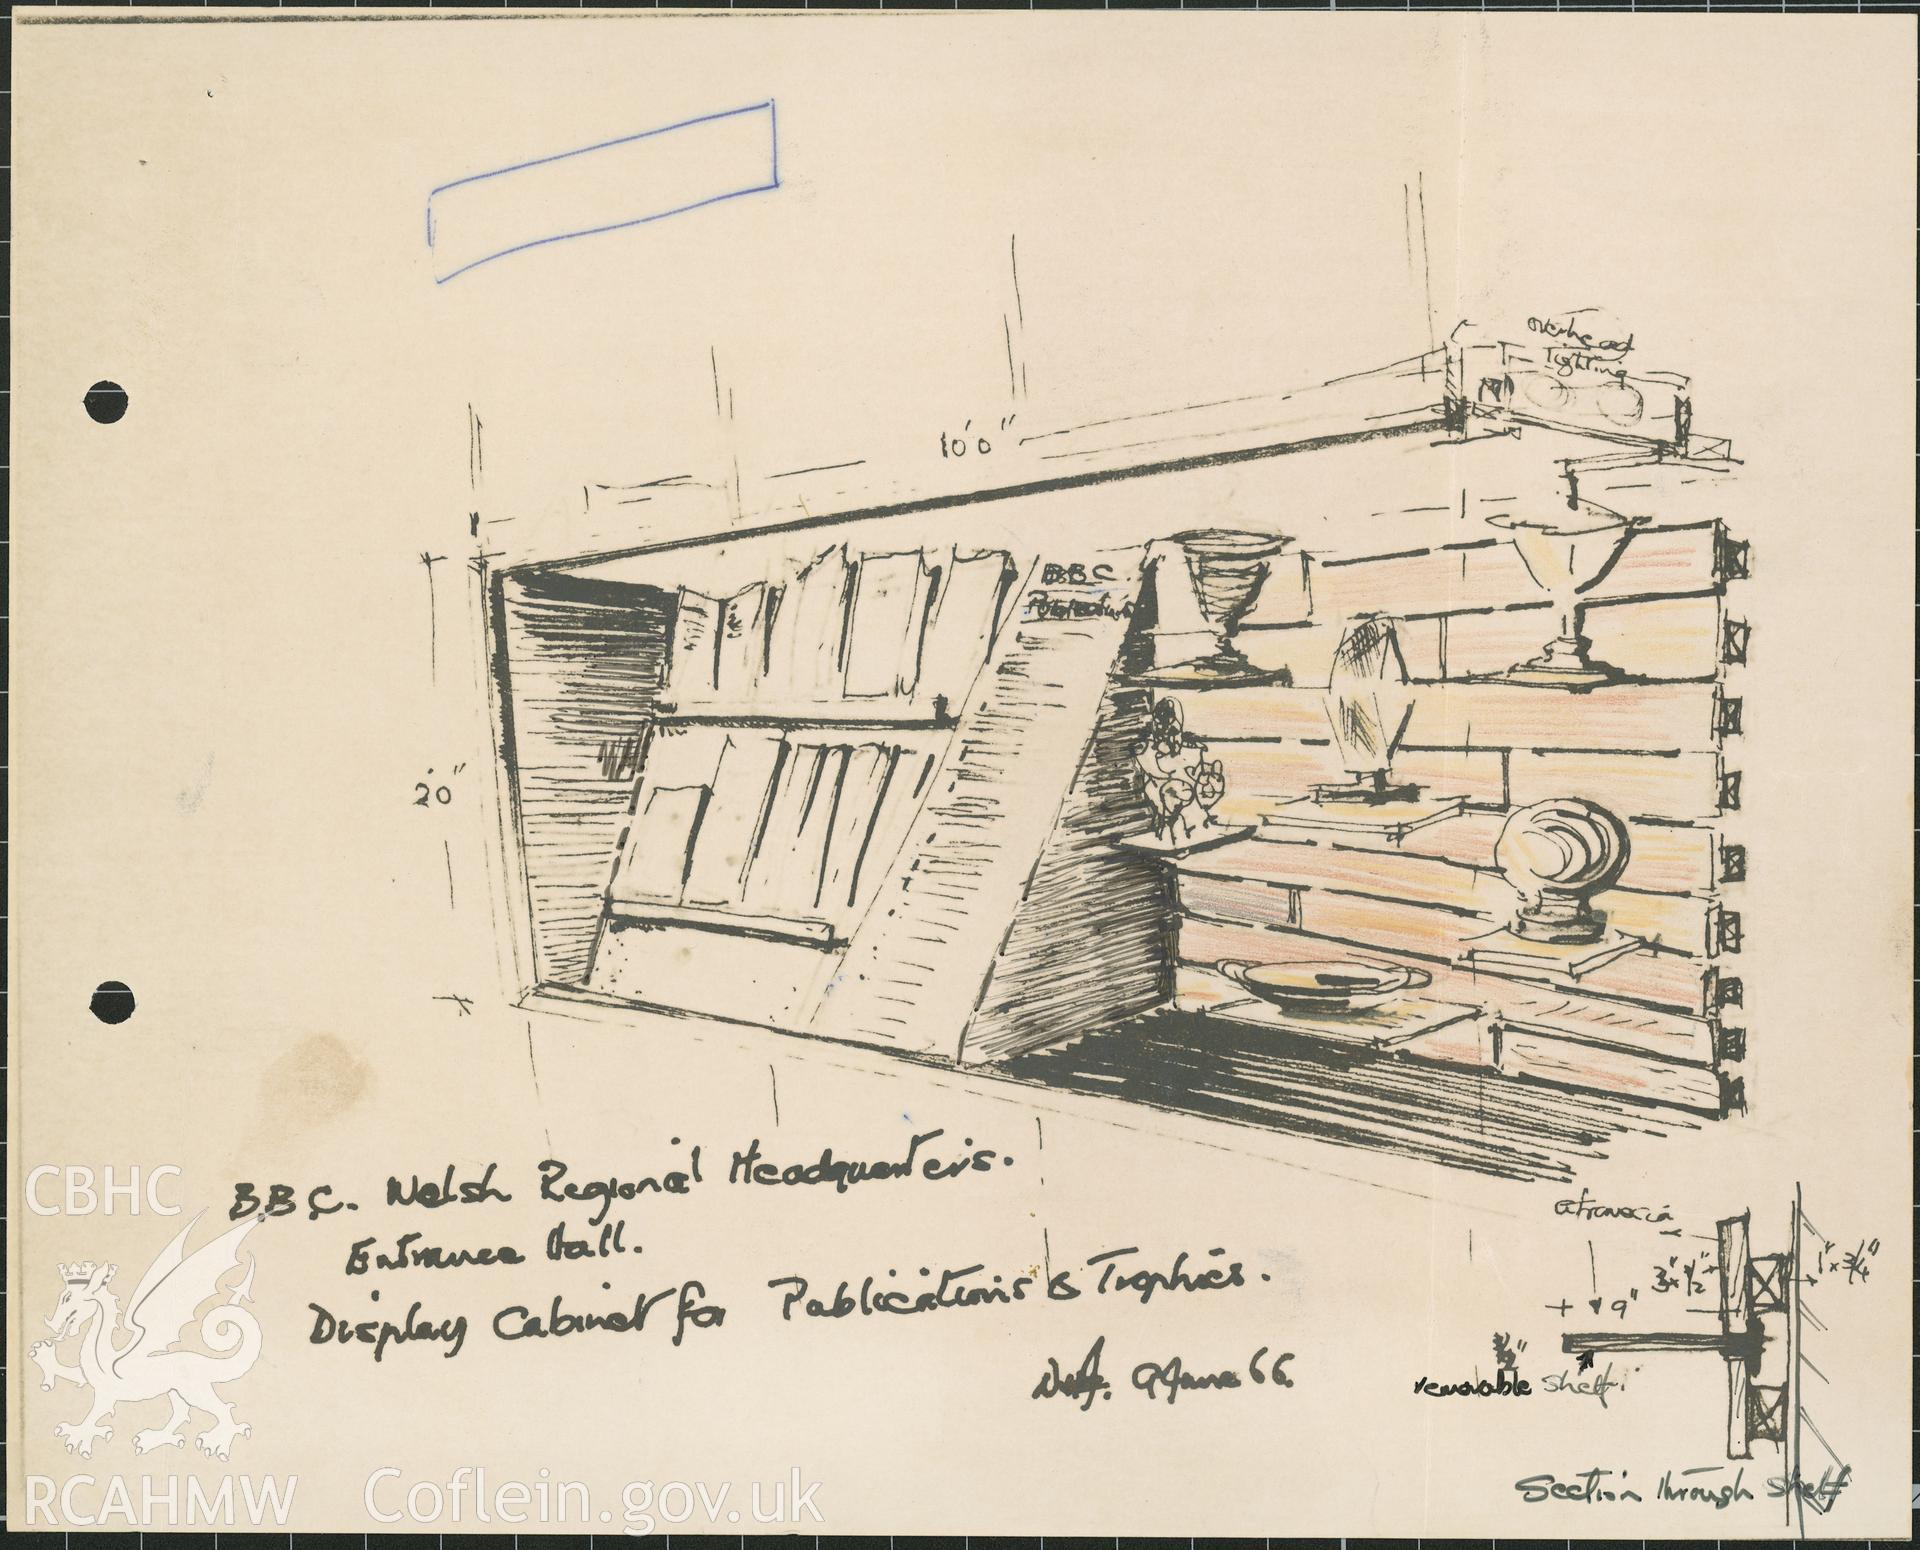 overhead
lighting
10'0"
BBC
Publications
2'0"
B.B.C. Welsh Regional Headquarters.
Entrance Hall.
Display Cabinet for Publications & Trophies.
9 June 66.
afrormosia
3" x 1/2"
1" x 3/4"
9"
removable shelf.
Section through shelf
CBHC
RCAHMW
Coflein.gov.uk